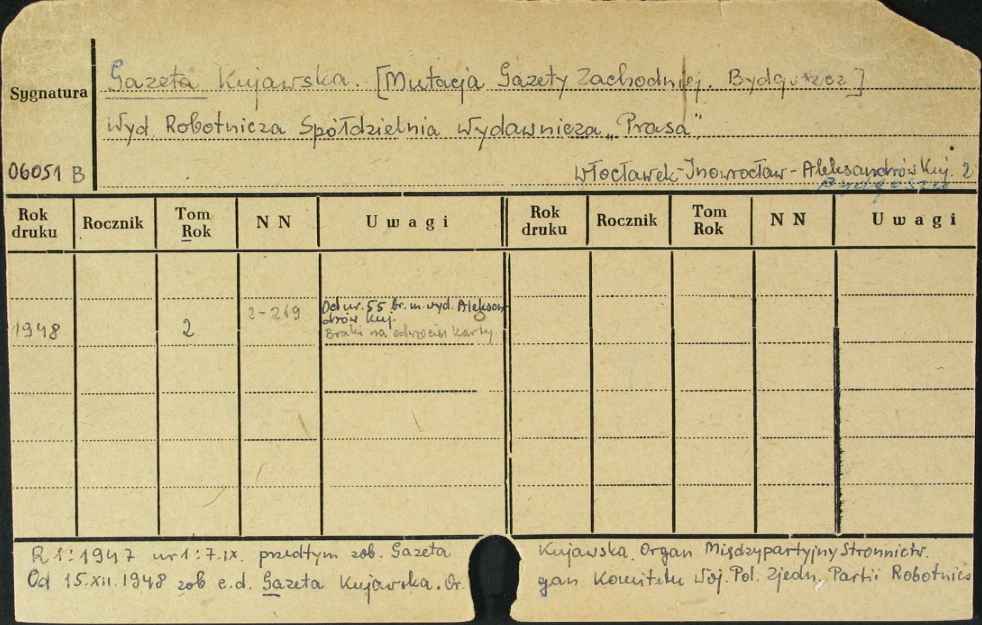 Gazeta Kujawska. [Mutacja Gazety Zachodniej. Bydgoszcz]
Sygnatura
Wyd Robotnicza Spółdzielnia Wydawnicza „Prasa"
06051 B
Włocławek-Inowrocław-Aleksandrów Kuj. 2
Rok druku Rocznik Tom Rok NN Uwagi Rok druku Rocznik Tom Rok NN Uwagi
1948 2 2-269 Od nr. 55 br. m. wyd. Aleksan-
drów Kuj.
Braki na odwrocie karty
R 1: 1947 nr 1: 7.IX. przedtym zob. Gazeta Kujawska. Organ Międzypartyjny Stronnictw.
Od 15.XII.1948 zob c.d. Gazeta Kujawska. Or. gan Komitetu Woj. Pol. Zjedn. Partii Robotnicz